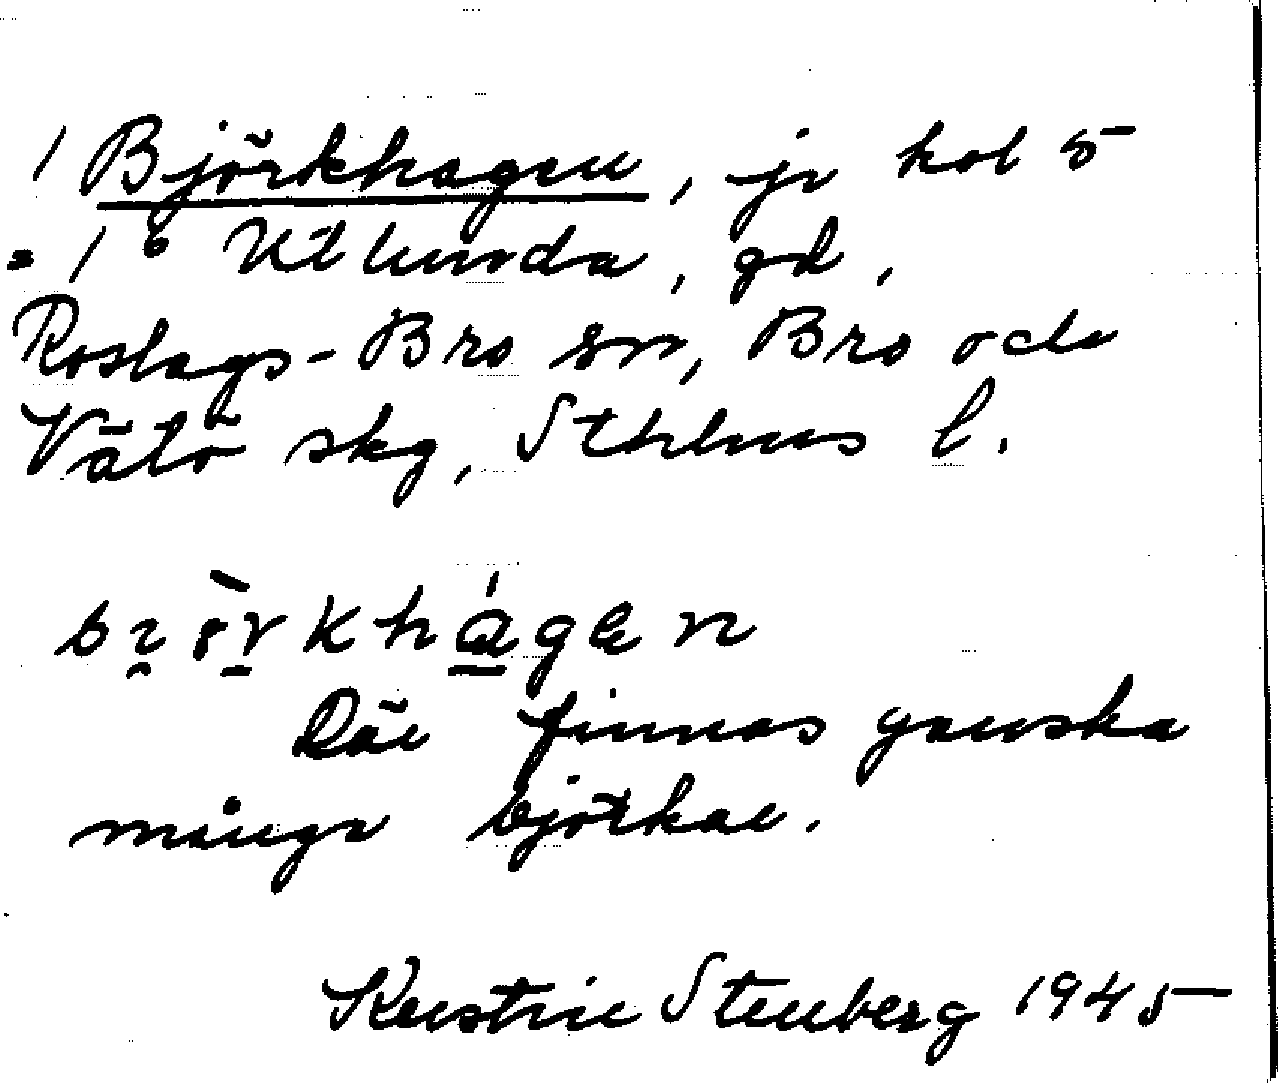 / Björkhagen, jr kol 5
= / 6 Utlunda, gd,
Roslags-Bro sn, Bro och
Vätö skg, Sthlms l.
Där finnas ganska
många björkar.
Kerstin Stenberg 1945